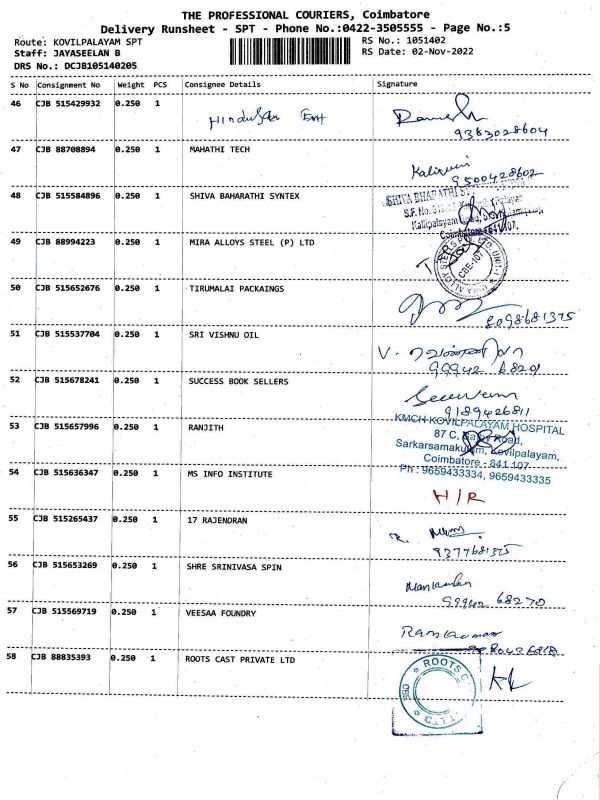 THE PROFESSIONAL COURIERS, Coimbatore
Delivery Runsheet - SPT - Phone No.:0422-3505555 - Page No.:5
Route: KOVILPALAYAM SPT
Staff: JAYASEELAN B
DRS No.: DCJB105140205
RS No.: 1051402
RS Date: 02-Nov-2022
S No Consignment No Weight PCS Consignee Details Signature
46 CJB 515429932 0.250 1 Hindusan Ent
9363028604
47 CJB 88708894 0.250 1 MAHATHI TECH
9500428602
48 CJB 515584896 0.250 1 SHIVA BAHARATHI SYNTEX
SHIVA BHARATHI
S.F. No.
Coimbatore-641 107.
49 CJB 88994223 0.250 1 MIRA ALLOYS STEEL (P) LTD
CBE-107
50 CJB 515652676 0.250 1 TIRUMALAI PACKAINGS
8098681375
51 CJB 515537704 0.250 1 SRI VISHNU OIL
99942 68201
52 CJB 515678241 0.250 1 SUCCESS BOOK SELLERS
9189426811
53 CJB 515657996 0.250 1 RANJITH
KMCH KOVILPALAYAM HOSPITAL
87 C, Road,
Sarkarsamakulam, Kovilpalayam,
Coimbatore - 641 107
Ph : 9659433334, 9659433335
54 CJB 515636347 0.250 1 MS INFO INSTITUTE H/R
55 CJB 515265437 0.250 1 17 RAJENDRAN
9377681375
56 CJB 515653269 0.250 1 SHRE SRINIVASA SPIN
99942 68270
57 CJB 515569719 0.250 1 VEESAA FOUNDRY
58 CJB 88835393 0.250 1 ROOTS CAST PRIVATE LTD
ROOTS